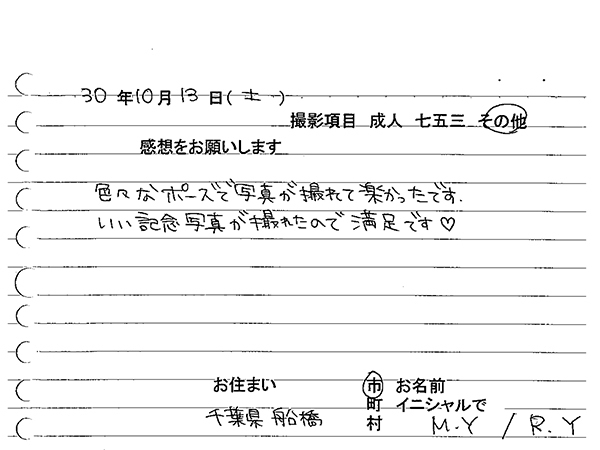 30年10月13日(土)
撮影項目 成人 七五三 その他
感想をお願いします
色々なポーズで写真が撮れて楽かったです.
いい記念写真が撮れたので満足です♡
お住まい 市 お名前
町 イニシャルで
千葉県 船橋 村 M.Y / R.Y